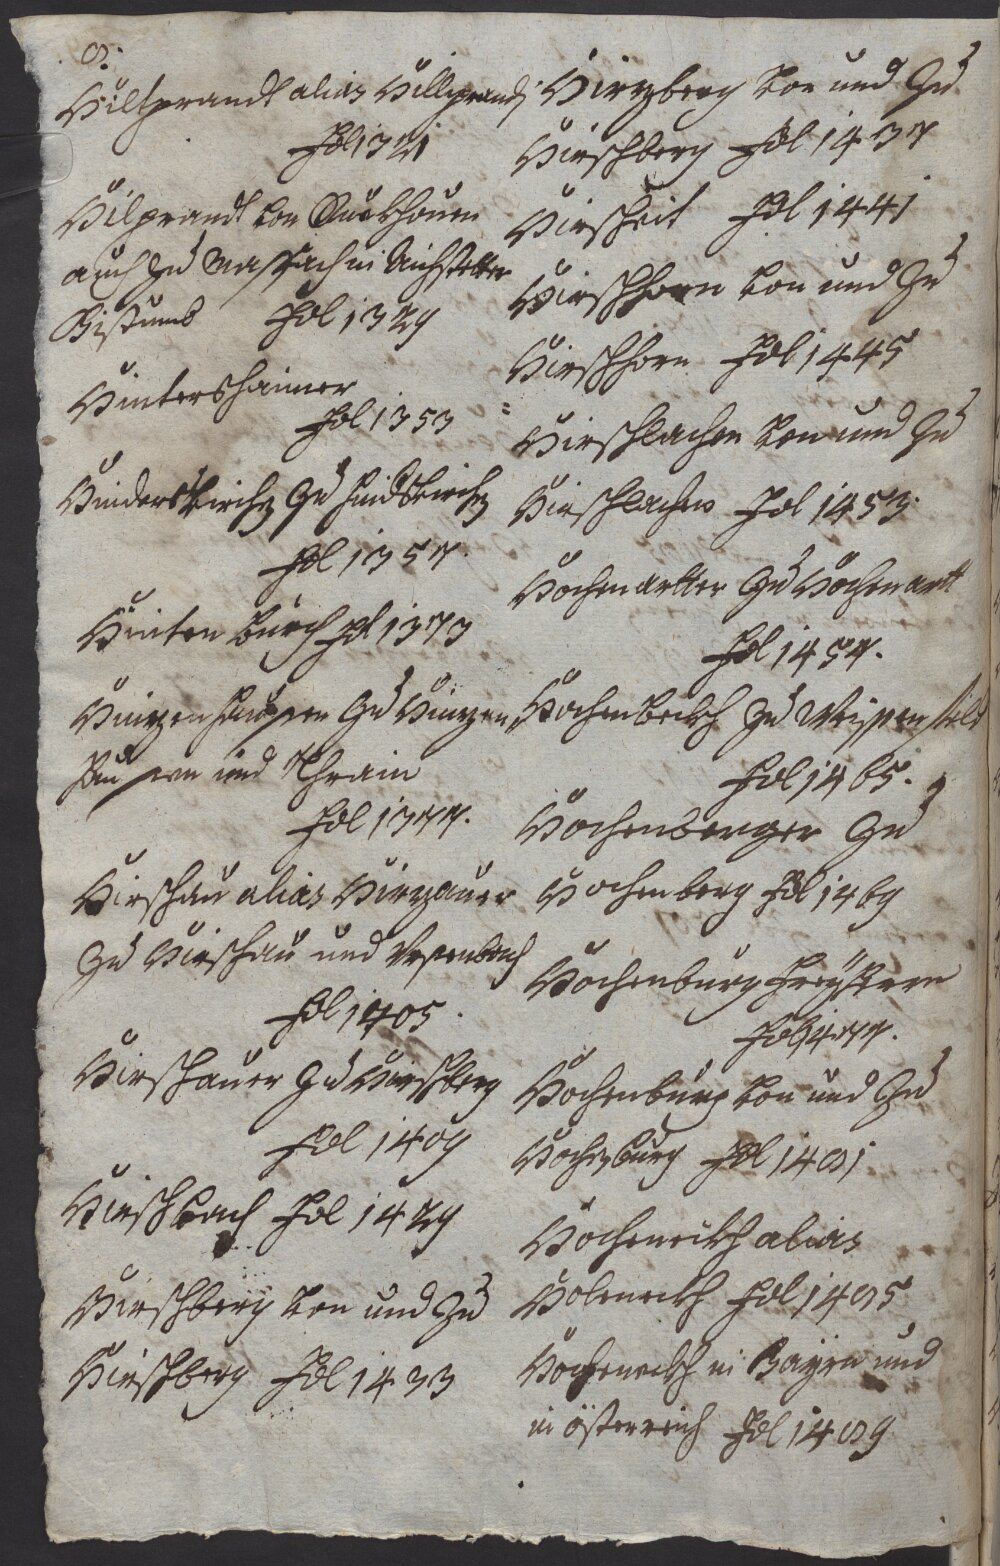 8.
Hiltprandt alias Hilliprandt
Fol 1321
Hilprandt von
auch zu Massach in Aichstetter
Bistumb Fol 1329
Hintershaimer
Fol 1353
Hinderskircher zu
Fol 1357.
Hinten Burch Fol 1373
Hinzenhausen zu Hinzen
hausen und Thrain
Fol 1377.
Hirschau alias Hirzauer
zu Hirschau und
Fol 1405.
Hirschauer zu Hirschberg
Fol 1409
Hirschbach Fol 1429
Hirschberg von und zu
Hirschberg Fol 1433
Hirzberg von und zu
Hirschberg Fol 1437
Hirscheit Fol 1441
Hirschhorn von und zu
Hirschhorn Fol 1445
Hirschlachen von und zu
Hirschlachen Fol 1453.
Hochenartter zu Hochenartt
Fol 1457.
Hochenbeckh zu Weissenfeld
Fol 1465.
Hochenberger zu
Hochenberg Fol 1469
Hochenburg Freÿherrn
Fol 1477.
Hochenburg von und zu
Hochenburg Fol 1481
Hocheneckh alias
Holeneckh Fol 1485
Hocheneckh in Bayrn und
in Österreich Fol 1489